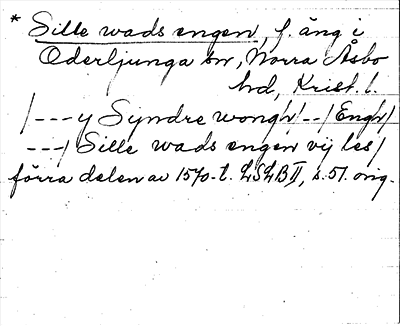 * Sille wads engen, f. äng i
Oderljunga sn, Norra Åsbo
hd, Krist. l.
/---y Syndre wongh/--/Engh/
---/ Sille wads engen vij les/
förra delen av 1570-t. LSLB II, s. 51. orig.